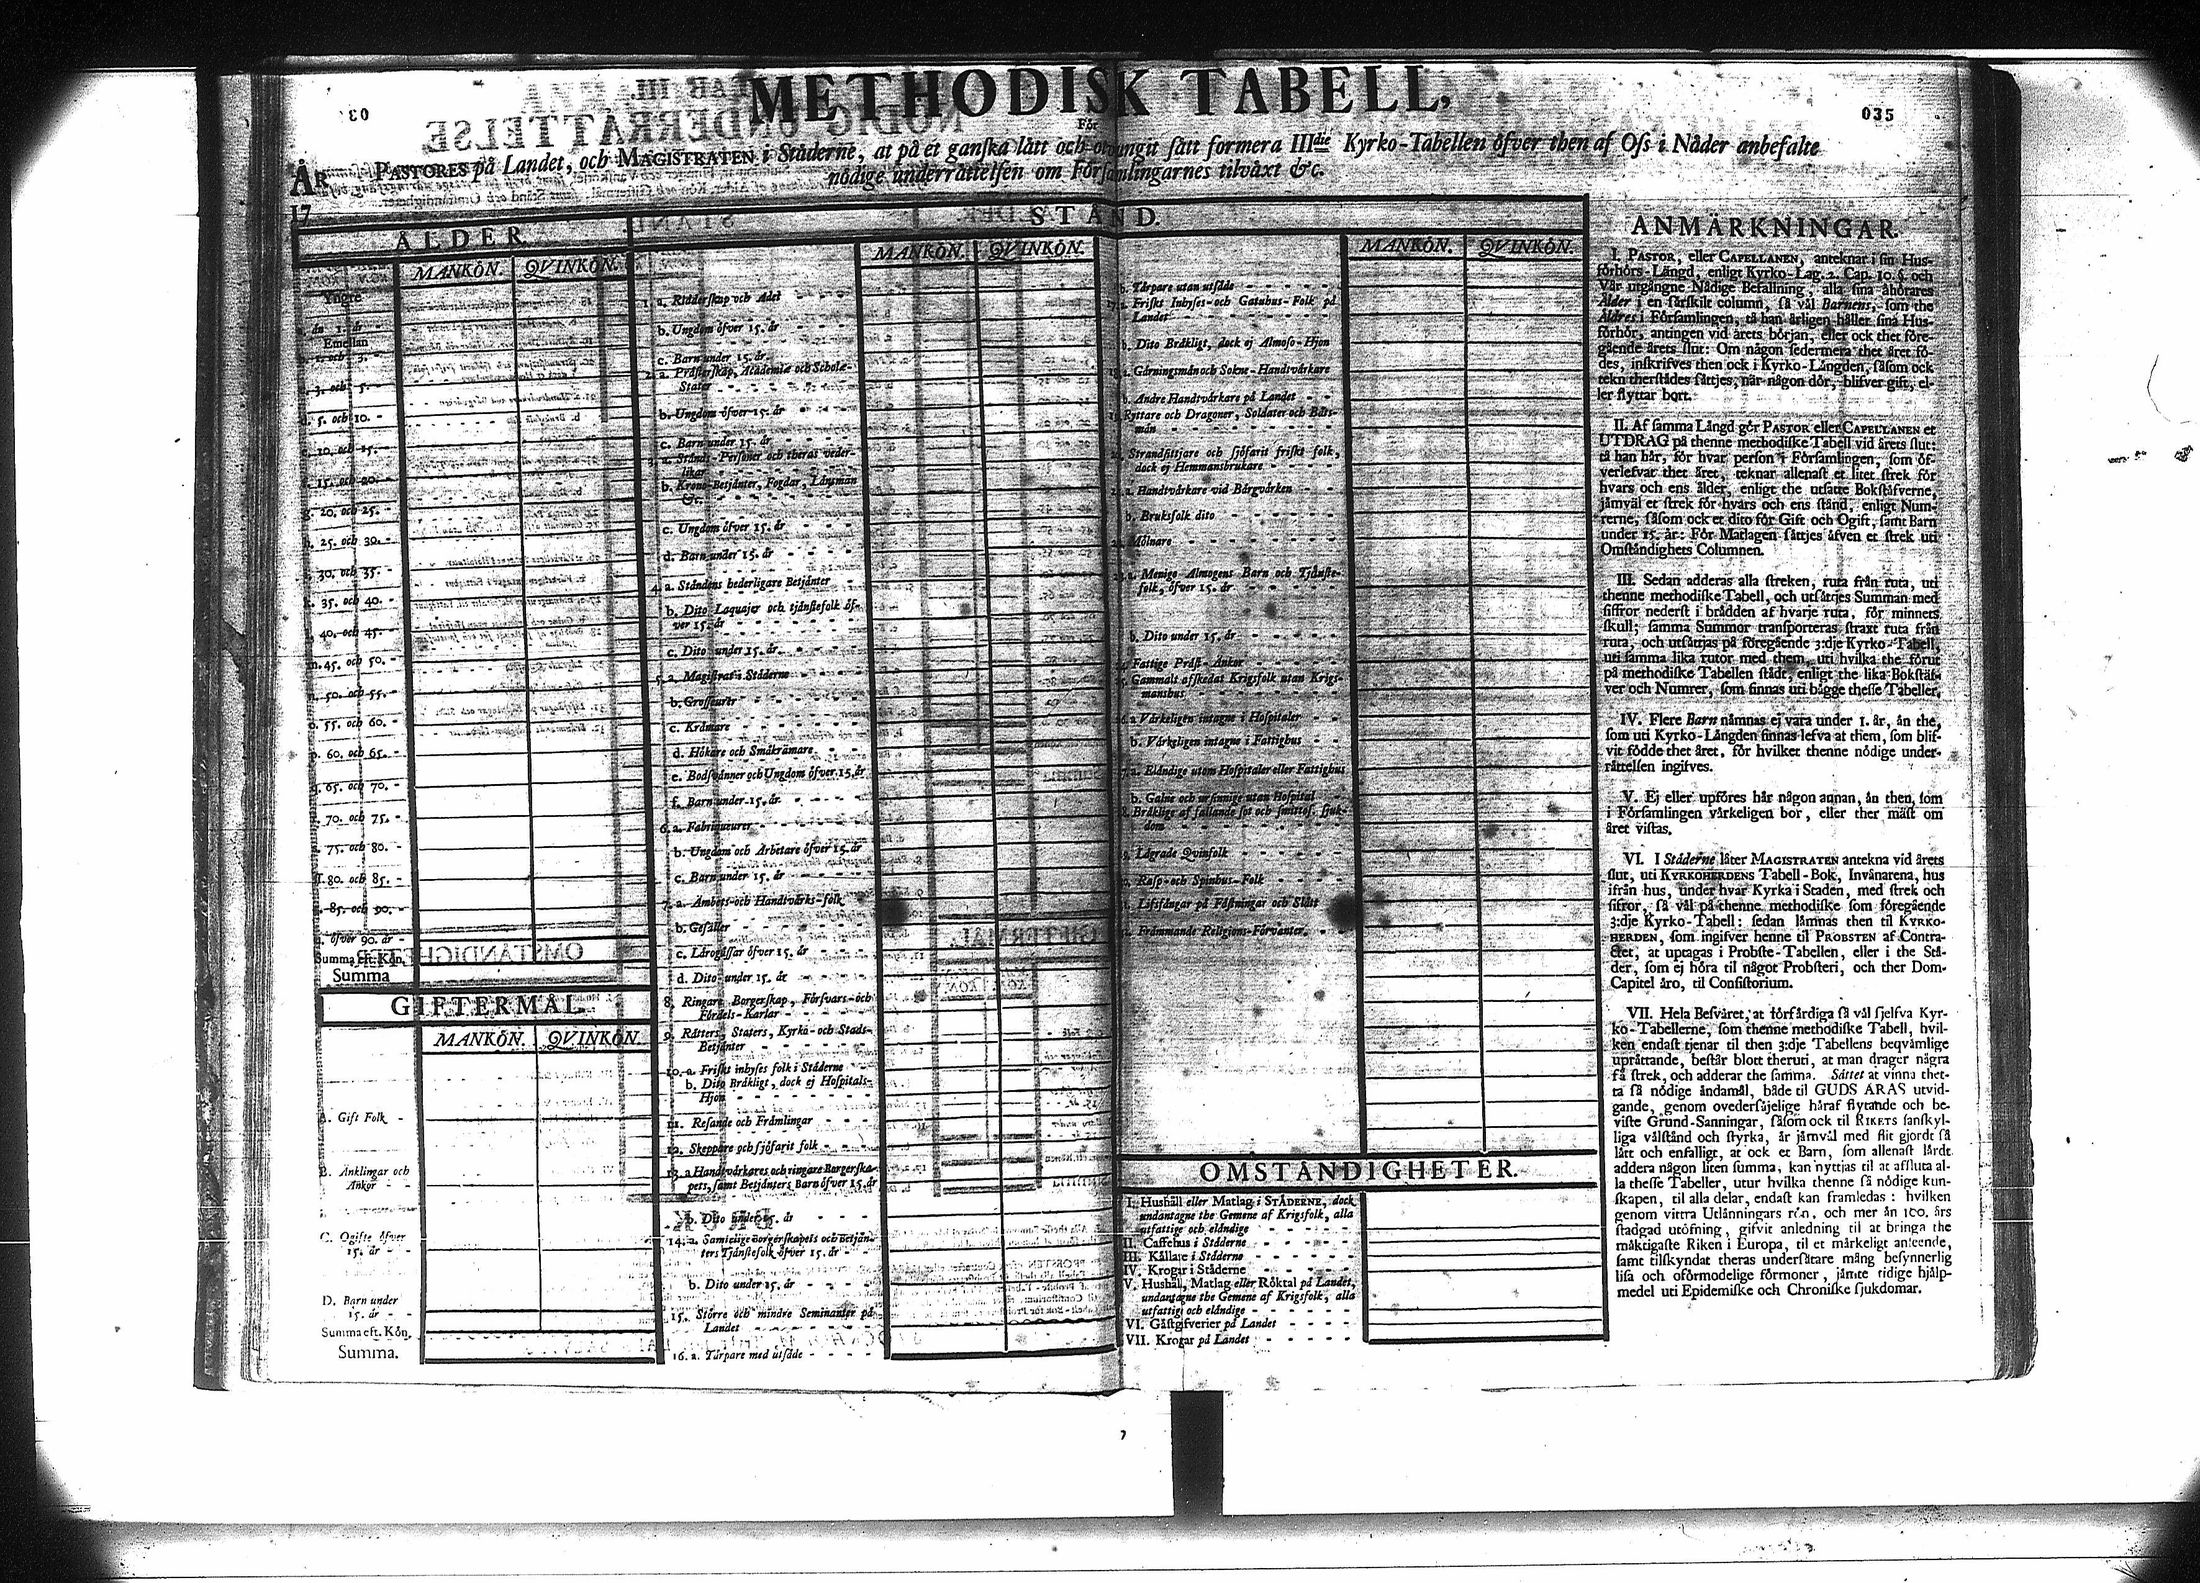 METHODISK TABELL,
035
För
PASTORES på Landet, och MAGISTRATEN i Städerne, at på et ganska lätt och otvungit sätt formera IIIdie Kyrko-Tabellen öfver then af Oss i Nåder anbefalte
nödige underrättelsen om Församlingarnes tilväxt &c.
ÅR
17
ÅLDER
MANKÖN. QVINKÖN.
Yngre
än 1. år -
Emellan
1. och 3. -
3. och 5. -
d. 5. och 10. -
e. 10. och 15. -
f. 15. och 20. -
g. 20. och 25. -
h. 25. och 30. -
30. och 35. -
k. 35. och 40. -
40. och 45. -
m. 45. och 50. -
n. 50. och 55. -
o. 55. och 60. -
p. 60. och 65. -
q. 65. och 70. -
70. och 75. -
75. och 80. -
80. och 85. -
85. och 90. -
öfver 90. år -
Summa eft. Kön.
Summa
GIFTERMÅL.
MANKÖN. QVINKÖN.
A. Gift Folk -
B. Änklingar och
Änkor - -
C. Ogifte öfver
15. år - -
D. Barn under
15. år -
Summa eft. Kön.
Summa.
STÅND.
MANKÖN. QVINKÖN.
1. a. Ridderskap och Adel
b. Ungdom öfver 15. år
c. Barn under 15. år
2. a. Prästerskap, Academiæ och Scholæ-
Stater
b. Ungdom öfver 15. år
c. Barn under 15. år
3. a. Stånds-Personer och theras veder-
likar
b. Krono-Betjänter, Fogdar, Länsmän
&c.
c. Ungdom öfver 15. år
d. Barn under 15. år
4. a. Ståndens hederligare Betjänter
b. Dito Laquajer och tjänstefolk öf-
ver 15. år
c. Dito under 15. år
5. a. Magistrat i Städerne
b. Grosseurer
c. Krämare
d. Hökare och Småkrämare
e. Bodsvänner och Ungdom öfver 15. år
f. Barn under 15. år
6. a. Fabriqueurer
b. Ungdom och Arbetare öfver 15. år
c. Barn under 15. år
7. a. Ämbets-och Handtvärks-folk
b. Gesäller
c. Lärogåssar öfver 15. år
d. Dito under 15. år
8. Ringare Borgerskap, Försvars-och
Fördels-Karlar
9. Rätters, Staters, Kyrko-och Stads-
Betjänter
10. a. Friskt inhyses folk i Städerne
b. Dito Bräkligt, dock ej Hospitals-
Hjon
11. Resande och Främlingar
12. Skeppare och sjöfarit folk
13. a. Handtvärkares och ringare Borgerska-
pets, samt Betjänters Barn öfver 15. år
b. Dito under 15. år
14. a. Samtelige Borgerskapets och Betjän-
ters Tjänstefolk öfver 15. år
b. Dito under 15. år
15. Större och mindre Seminanter på
Landet
16. a. Tårpare med utsäde
MANKÖN. QVINKÖN.
b. Tårpare utan utsäde
17. a. Friskt Inhyses-och Gatuhus-Folk på
Landet
b. Dito Bräkligt, dock ej Almoso-Hjon
a. Gärningsmän och Sokne-Handtvärkare
b. Andre Handtvärkare på Landet
Ryttare och Dragoner, Soldater och Båts-
män
Strandsittjare och sjöfarit friskt folk,
dock ej Hemmansbrukare
a. Handtvärkare vid Bärgvärken
b. Bruksfolk dito
Mölnare
a. Menige Almogens Barn och Tjänste-
folk, öfver 15. år
b. Dito under 15. år
Fattige Präst-Änkor
Gammalt afskedat Krigsfolk utan Krigs-
manshus
a. Värkeligen intagne i Hospitaler
b. Värkeligen intagne i Fattighus
a. Eländige utom Hospitaler eller Fattighus
b. Galne och ursinnige utan Hospital
Bräklige af fallande sot och smittos. sjuk-
dom
Lägrade Qvinfolk
Rasp-och Spinhus-Folk
Lifsfångar på Fästningar och Slått
Främmande Religions-Förvanter.
OMSTÄNDIGHETER.
I. Hushåll eller Matlag i STÄDERNE, dock
undantagne the Gemene af Krigsfolk, alla
utfattige och eländige
II. Caffehus i Städerne
III. Källare i Städerne
IV. Krogar i Städerne
V. Hushåll, Matlag eller Röktal på Landet,
undantagne the Gemene af Krigsfolk, alla
utfattige och eländige
VI. Gästgifverier på Landet
VII. Krogar på Landet
ANMÄRKNINGAR.
I. PASTOR, eller CAPELLANEN, anteknar i sin Hus-
förhörs-Längd, enligt Kyrko-Lag. 2. Cap. 10. §. och
Vår utgångne Nådige Befallning, alla sina åhörares
Ålder i en särskilt column, så väl Barnens, som the
Äldres i Församlingen, tå han årligen håller sina Hus-
förhör, antingen vid årets början, eller ock thet före-
gående årets slut: Om någon sedermera thet året fö-
des, inskrifves then ock i Kyrko-Längden, såsom ock
tekn therstädes sättjes, när någon dör, blifver gift, el-
ler flyttar bort.
II. Af samma Längd gör PASTOR eller CAPELLANEN et
UTDRAG på thenne methodiske Tabell vid årets slut:
tå han här, för hvar person i Församlingen, som öf-
verlefvat thet året, teknar allenast et litet strek för
hvars och ens ålder, enligt the utsatte Bokstäfverne,
jämväl et strek för hvars och ens stånd, enligt Num-
rerne, såsom ock et dito för Gift och Ogift, samt Barn
under 15. år: För Matlagen sättjes äfven et strek uti
Omständighets Columnen.
III. Sedan adderas alla streken, ruta från ruta, uti
thenne methodiske Tabell, och utsättjes Summan med
siffror nederst i brädden af hvarje ruta, för minnets
skull; samma Summor transporteras straxt ruta från
ruta, och utsättjas på föregående 3:dje Kyrko-Tabell,
uti samma lika rutor med them, uti hvilka the förut
på methodiske Tabellen städt, enligt the lika Bokstäf-
ver och Numrer, som finnas uti bägge thesse Tabeller.
IV. Flere Barn nämnas ej vara under 1. år, än the,
som uti Kyrko-Längden finnas lefva at them, som blif-
vit födde thet året, för hvilket thenne nödige under-
rättelsen ingifves.
V. Ej eller upföres här någon annan, än then, som
i Församlingen värkeligen bor, eller ther mäst om
året vistas.
VI. I Städerne låter MAGISTRATEN antekna vid årets
slut, uti KYRKOHERDENS Tabell-Bok, Invånarena, hus
ifrån hus, under hvar Kyrka i Staden, med strek och
sifror, så väl på thenne methodiske som föregående
3:dje Kyrko-Tabell: sedan lämnas then til KYRKO-
HERDEN, som ingifver henne til PROBSTEN af Contra-
ctet, at uptagas i Probste-Tabellen, eller i the Stä-
der, som ej höra til något Probsteri, och ther Dom-
Capitel äro, til Consistorium.
VII. Hela Besväret, at förfärdiga så väl sjelfva Kyr-
ko-Tabellerne, som thenne methodiske Tabell, hvil-
ken endast tjenar til then 3:dje Tabellens beqvämlige
uprättande, består blott theruti, at man drager några
få strek, och adderar the samma. Sättet at vinna thet-
ta så nödige ändamål, både til GUDS ÄRAS utvid-
gande, genom ovedersäjelige häraf flytande och be-
viste Grund-Sanningar, såsom ock til RIKETS sanskyl-
liga välstånd och styrka, är jämväl med flit gjordt så
lätt och enfalligt, at ock et Barn, som allenast lärdt
addera någon liten summa, kan nyttjas til at afsluta al-
la thesse Tabeller, utur hvilka thenne så nödige kun-
skapen, til alla delar, endast kan framledas: hvilken
genom vittra Utlänningars rön, och mer än 100. års
stadgad utöfning, gifvit anledning til at bringa the
mäktigaste Riken i Europa, til et märkeligt anseende,
samt tilskyndat theras undersåtare mång besynnerlig
lisa och oförmodelige förmoner, jämte tidige hjälp-
medel uti Epidemiske och Chroniske sjukdomar.